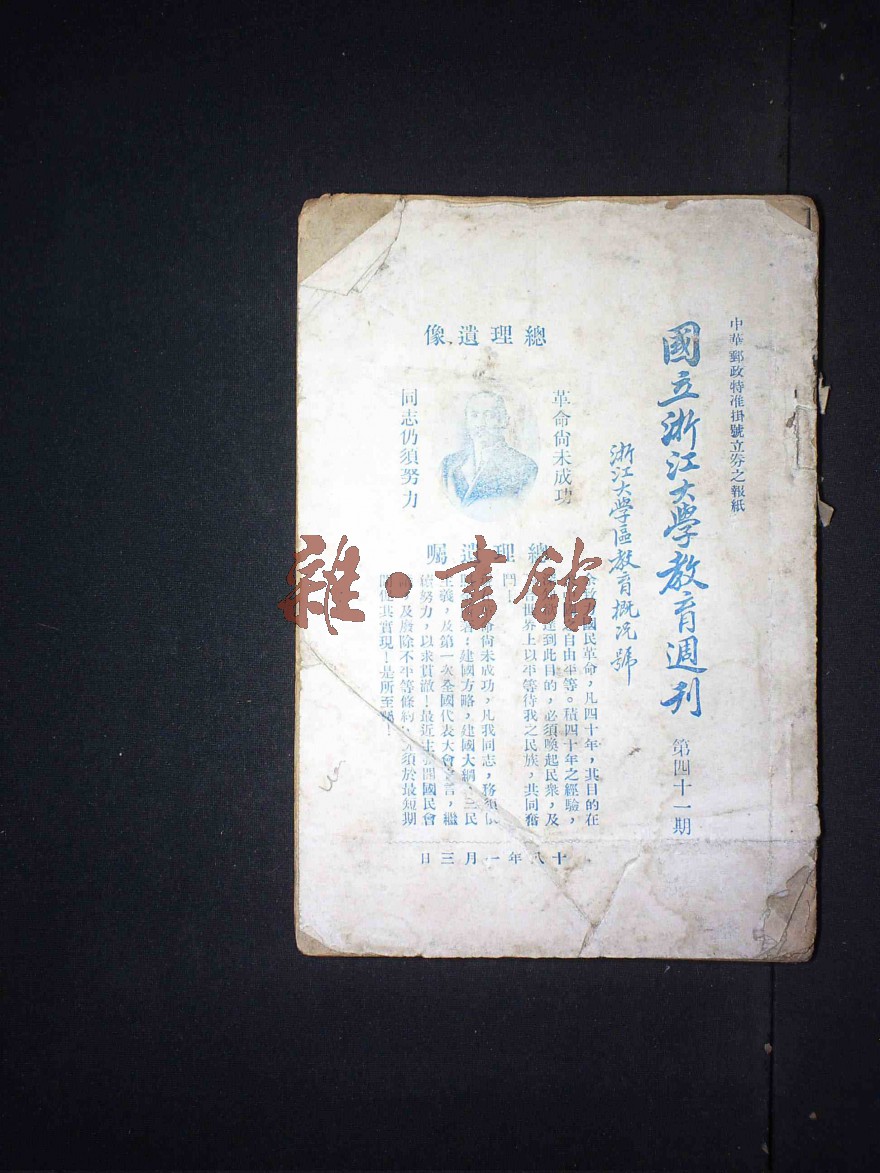 中華郵政特准掛號立券之報紙
國立浙江大學教育週刊
第四十一期
浙江大學區教育概況號
總理遺像
革命尚未成功
同志仍須努力
總理遺囑
國民革命,凡四十年,其目的在
自由平等。積四十年之經驗,
達到此目的,必須喚起民衆,及
世界上以平等待我之民族,共同奮
鬥!
命尚未成功,凡我同志,務須
建國方略,建國大綱,三民
主義,及第一次全國代表大會宣言,繼
續努力,以求貫澈!最近主張開國民會
及廢除不平等條約,須於最短期
間促其實現!是所至囑!
十八年一月三日
雜·書館